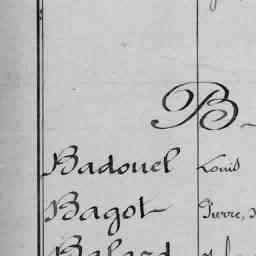 B
Badouel Louis
Bagot Pierre,
Balard